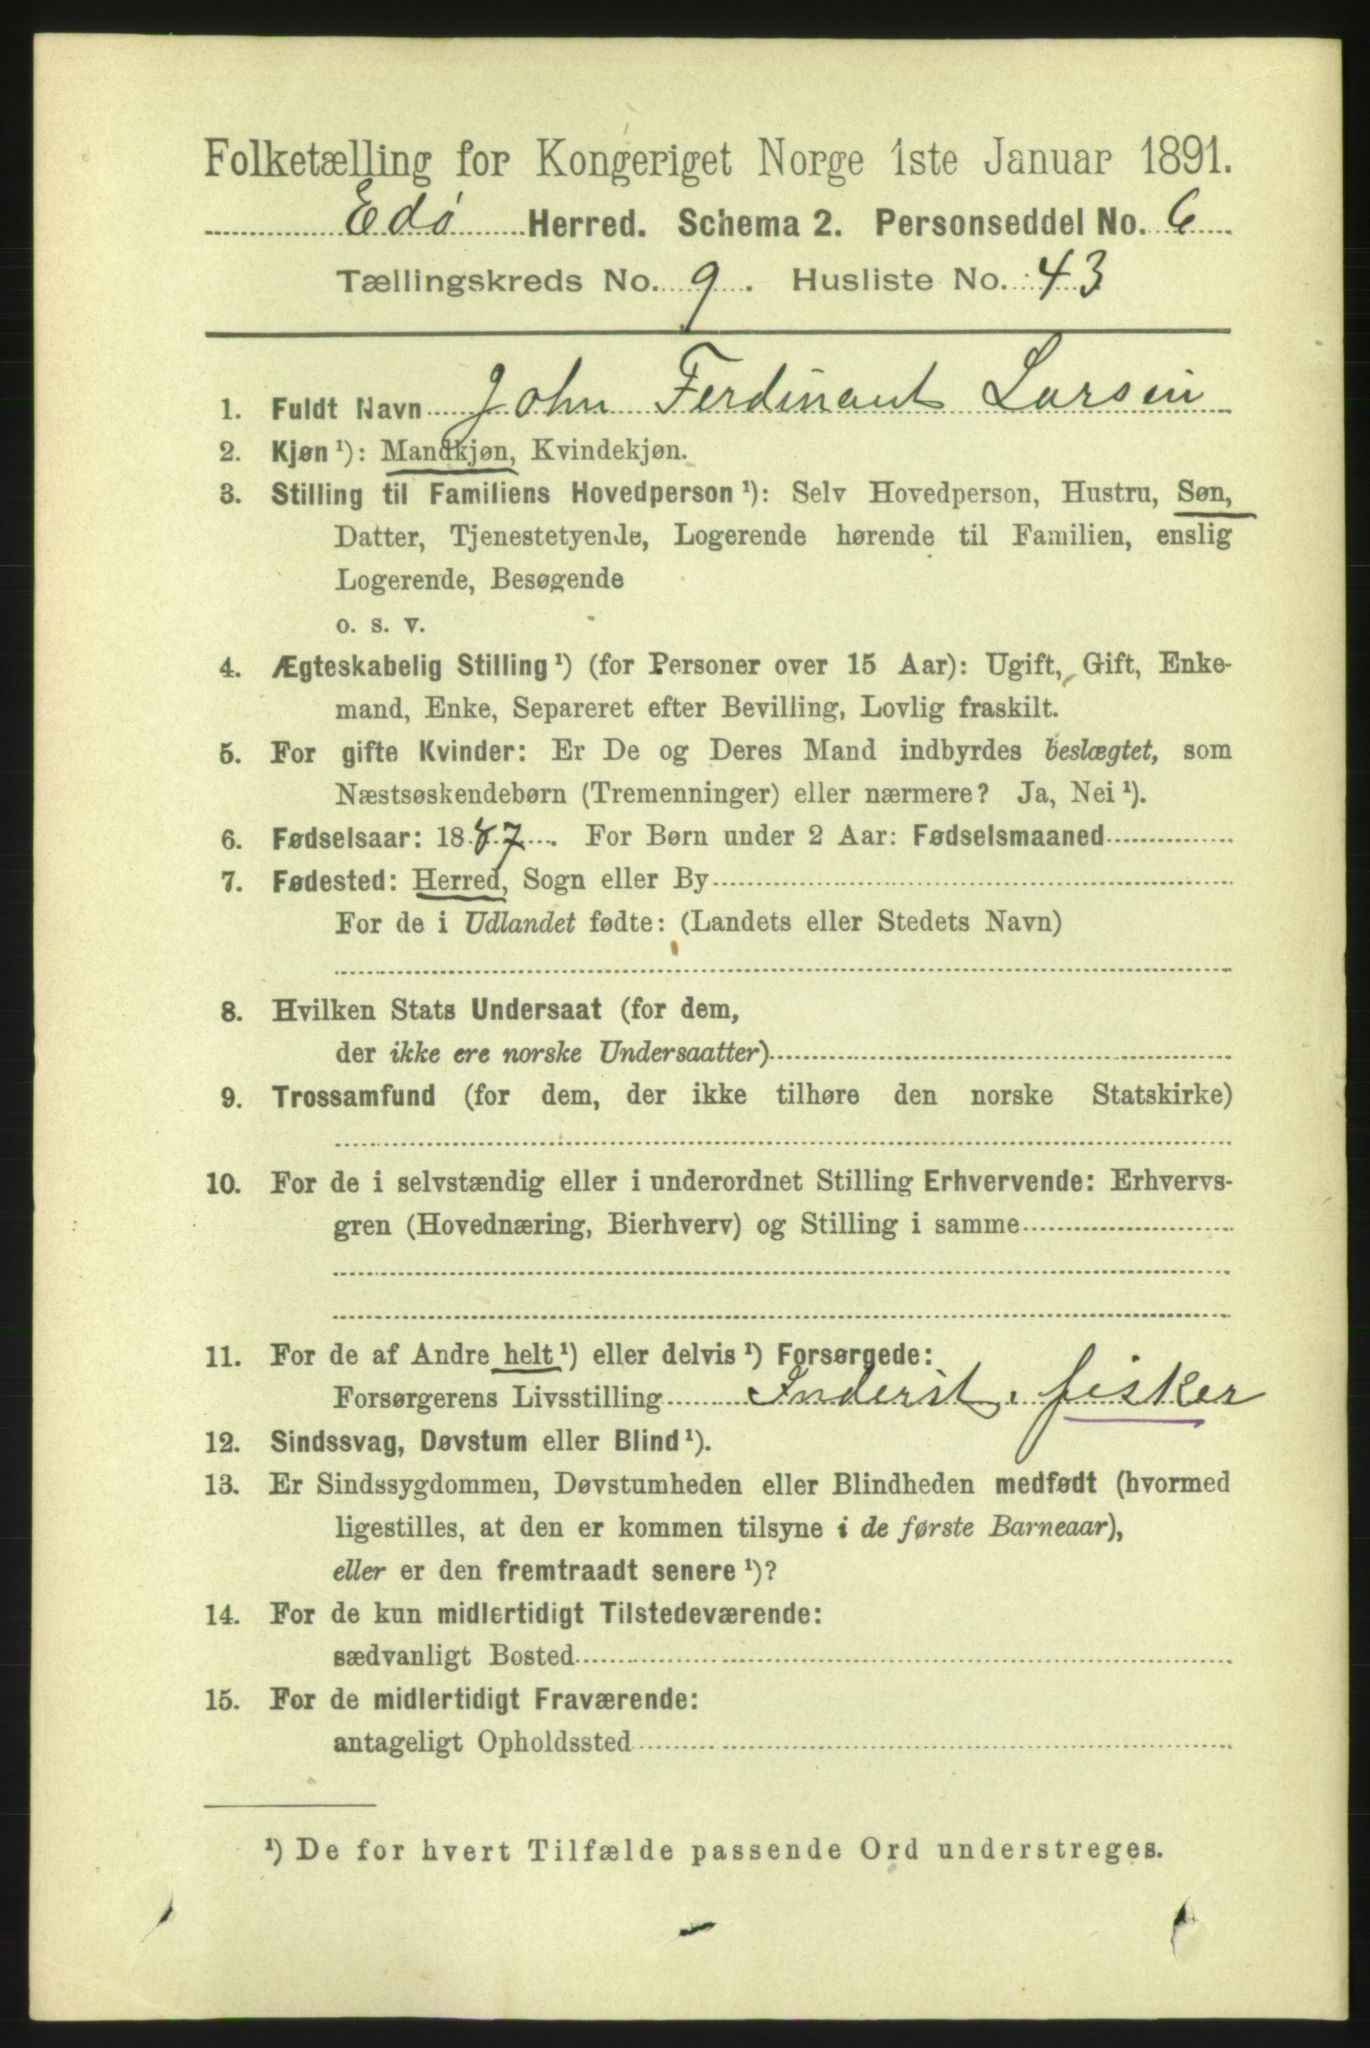 Folketælling for Kongeriget Norge 1ste Januar 1891.
Edø Herred. Schema 2. Personseddel No. 6
Tællingskreds No. 9. Husliste No. 43
1. Fuldt Navn John Ferdinant Larsen
2. Kjøn ¹): Mandkjøn, Kvindekjøn.
3. Stilling til Familiens Hovedperson ¹): Selv Hovedperson, Hustru, Søn,
Datter, Tjenestetyende, Logerende hørende til Familien, enslig
Logerende, Besøgende
o. s. v.
4. Ægteskabelig Stilling ¹) (for Personer over 15 Aar): Ugift, Gift, Enke-
mand, Enke, Separeret efter Bevilling, Lovlig fraskilt.
5. For gifte Kvinder: Er De og Deres Mand indbyrdes beslægtet, som
Næstsøskendebørn (Tremenninger) eller nærmere? Ja, Nei ¹).
6. Fødselsaar: 1887. For Børn under 2 Aar: Fødselsmaaned
7. Fødested: Herred, Sogn eller By
For de i Udlandet fødte: (Landets eller Stedets Navn)
8. Hvilken Stats Undersaat (for dem,
der ikke ere norske Undersaatter)
9. Trossamfund (for dem, der ikke tilhøre den norske Statskirke)
10. For de i selvstændig eller i underordnet Stilling Erhvervende: Erhvervs-
gren (Hovednæring, Bierhverv) og Stilling i samme
11. For de af Andre helt ¹) eller delvis ¹) Forsørgede:
Forsørgerens Livsstilling Inderst, fisker
12. Sindssvag, Døvstum eller Blind ¹).
13. Er Sindssygdommen, Døvstumheden eller Blindheden medfødt (hvormed
ligestilles, at den er kommen tilsyne i de første Barneaar),
eller er den fremtraadt senere ¹)?
14. For de kun midlertidigt Tilstedeværende:
sædvanligt Bosted
15. For de midlertidigt Fraværende:
antageligt Opholdssted
¹) De for hvert Tilfælde passende Ord understreges.